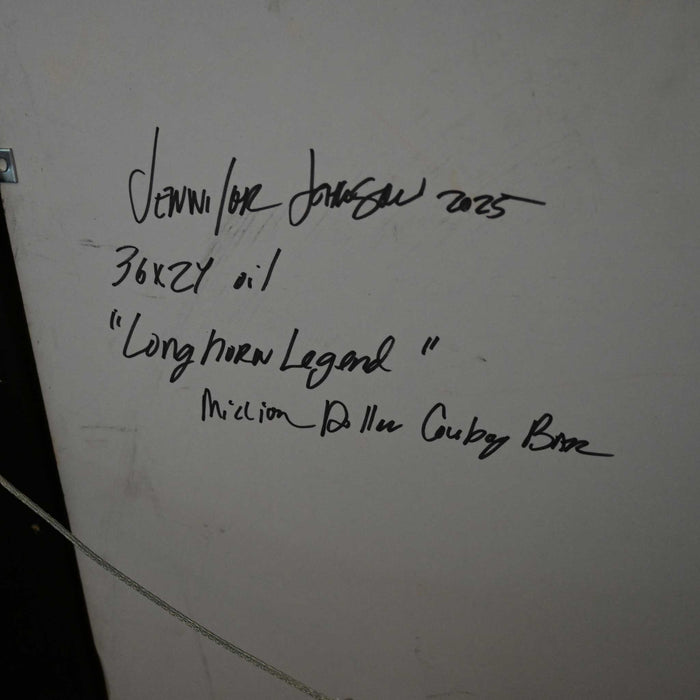 Jennifer Johnson 2025
36x24 oil
"Longhorn Legend"
Million Dollar Cowboy Bar